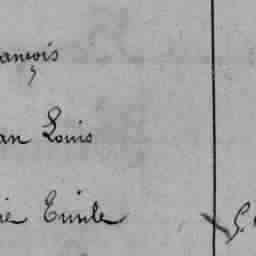 ançois
an Louis
ie Emile